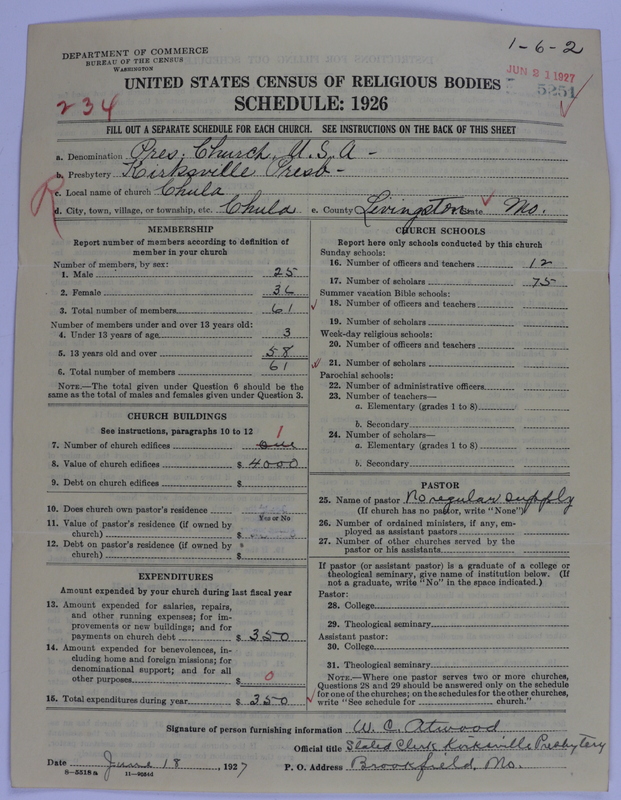 1-6-2
DEPARTMENT OF COMMERCE
BUREAU OF THE CENSUS
WASHINGTON
JUN 21 1927
5251
234
UNITED STATES CENSUS OF RELIGIOUS BODIES
SCHEDULE: 1926
FILL OUT A SEPARATE SCHEDULE FOR EACH CHURCH. SEE INSTRUCTIONS ON THE BACK OF THIS SHEET
a. Denomination Pres. Church, U.S.A -
b. Presbytery Kirksville Presb -
c. Local name of church Chula
R
d. City, town, village, or township, etc. Chula e. County Livingston State Mo.
MEMBERSHIP
Report number of members according to definition of
member in your church
Number of members, by sex:
1. Male 25
2. Female 36
3. Total number of members 61
Number of members under and over 13 years old:
4. Under 13 years of age 3
5. 13 years old and over 58
6. Total number of members 61
NOTE.—The total given under Question 6 should be the
same as the total of males and females given under Question 3.
CHURCH BUILDINGS
See instructions, paragraphs 10 to 12
7. Number of church edifices one 1
8. Value of church edifices $ 4000
9. Debt on church edifices $
10. Does church own pastor's residence
Yes or No
11. Value of pastor's residence (if owned by
church) $
12. Debt on pastor's residence (if owned by
church) $
EXPENDITURES
Amount expended by your church during last fiscal year
13. Amount expended for salaries, repairs,
and other running expenses; for im-
provements or new buildings; and for
payments on church debt $ 350
14. Amount expended for benevolences, in-
cluding home and foreign missions; for
denominational support; and for all
other purposes $ 0
15. Total expenditures during year $ 350
CHURCH SCHOOLS
Report here only schools conducted by this church
Sunday schools:
16. Number of officers and teachers 12
17. Number of scholars 75
Summer vacation Bible schools:
18. Number of officers and teachers
19. Number of scholars
Week-day religious schools:
20. Number of officers and teachers
21. Number of scholars
Parochial schools:
22. Number of administrative officers
23. Number of teachers—
a. Elementary (grades 1 to 8)
b. Secondary
24. Number of scholars—
a. Elementary (grades 1 to 8)
b. Secondary
PASTOR
25. Name of pastor No regular supply
(If church has no pastor, write "None")
26. Number of ordained ministers, if any, em-
ployed as assistant pastors
27. Number of other churches served by the
pastor or his assistants
If pastor (or assistant pastor) is a graduate of a college or
theological seminary, give name of institution below. (If
not a graduate, write "No" in the space indicated.)
Pastor:
28. College
29. Theological seminary
Assistant pastor:
30. College
31. Theological seminary
NOTE.—Where one pastor serves two or more churches,
Questions 28 and 29 should be answered only on the schedule
for one of the churches; on the schedules for the other churches,
write "See schedule for church."
Signature of person furnishing information W. C. Atwood
Official title Stated Clerk Kirksville Presbytery
Date June 18, 1927 P. O. Address Brookfield, Mo.